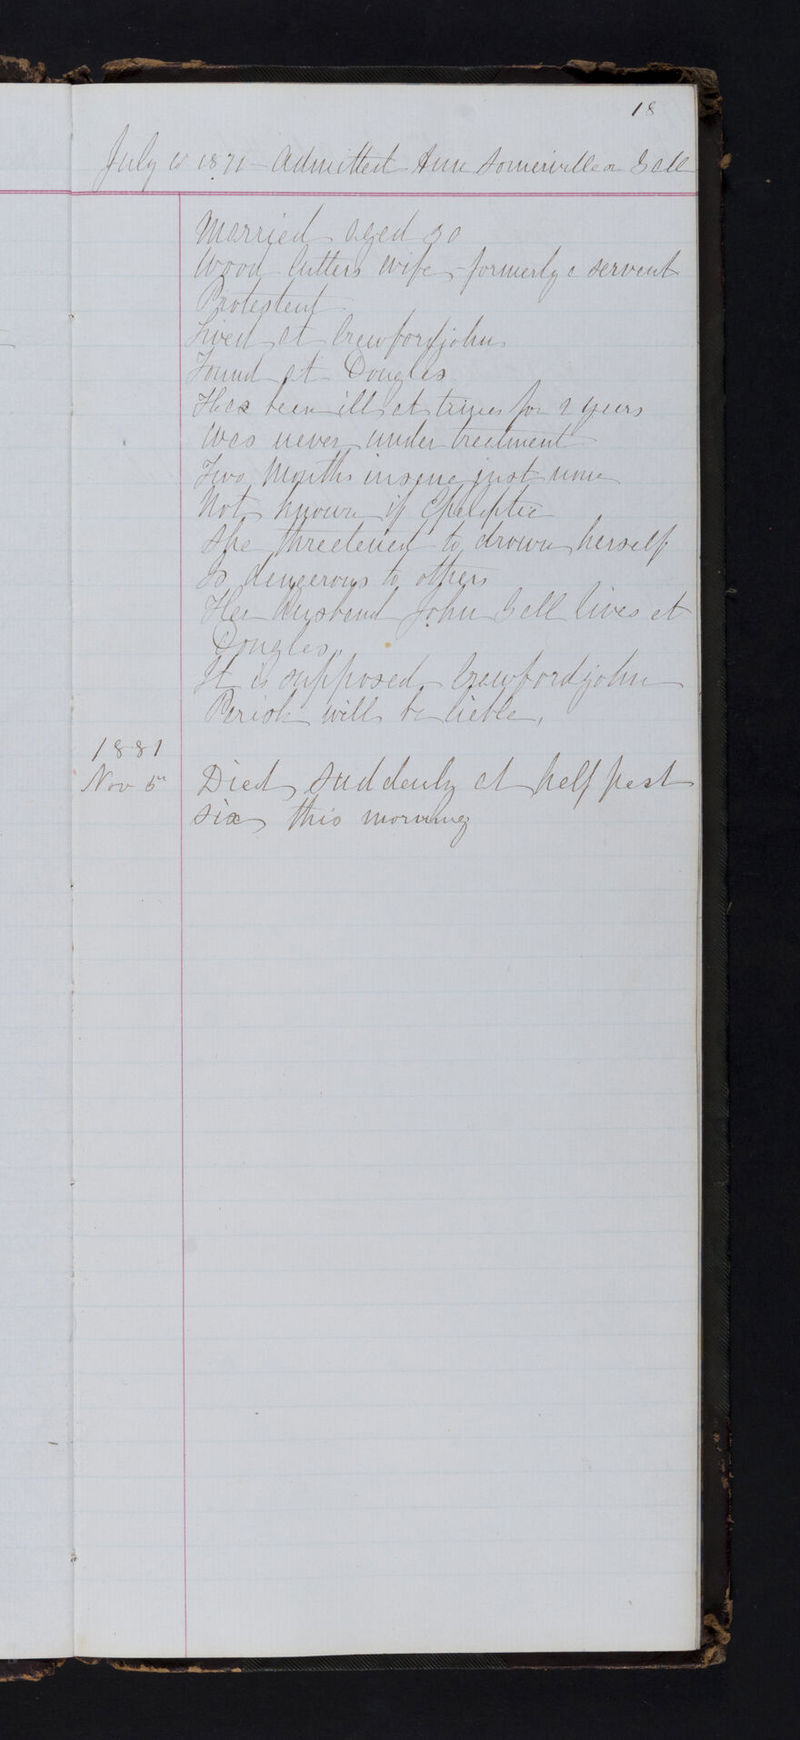 18
July 10 1871 Admitted Ann Somerville or Bell
Married aged 30
Wood Cutters wife - formerly a servant
Protestant
Lived at Crawfordjohn
Found at Douglas
Has been ill at times for 2 years
Was never under treatment
Two Months insane just now
Not known if Epileptic
She threatened to drown herself
Is dangerous to others
Her Husband John Bell lives at
Douglas.
It is supposed Crawfordjohn
Parish will be lieble.
1881
Nov 5th Died suddenly at half past
six this morning